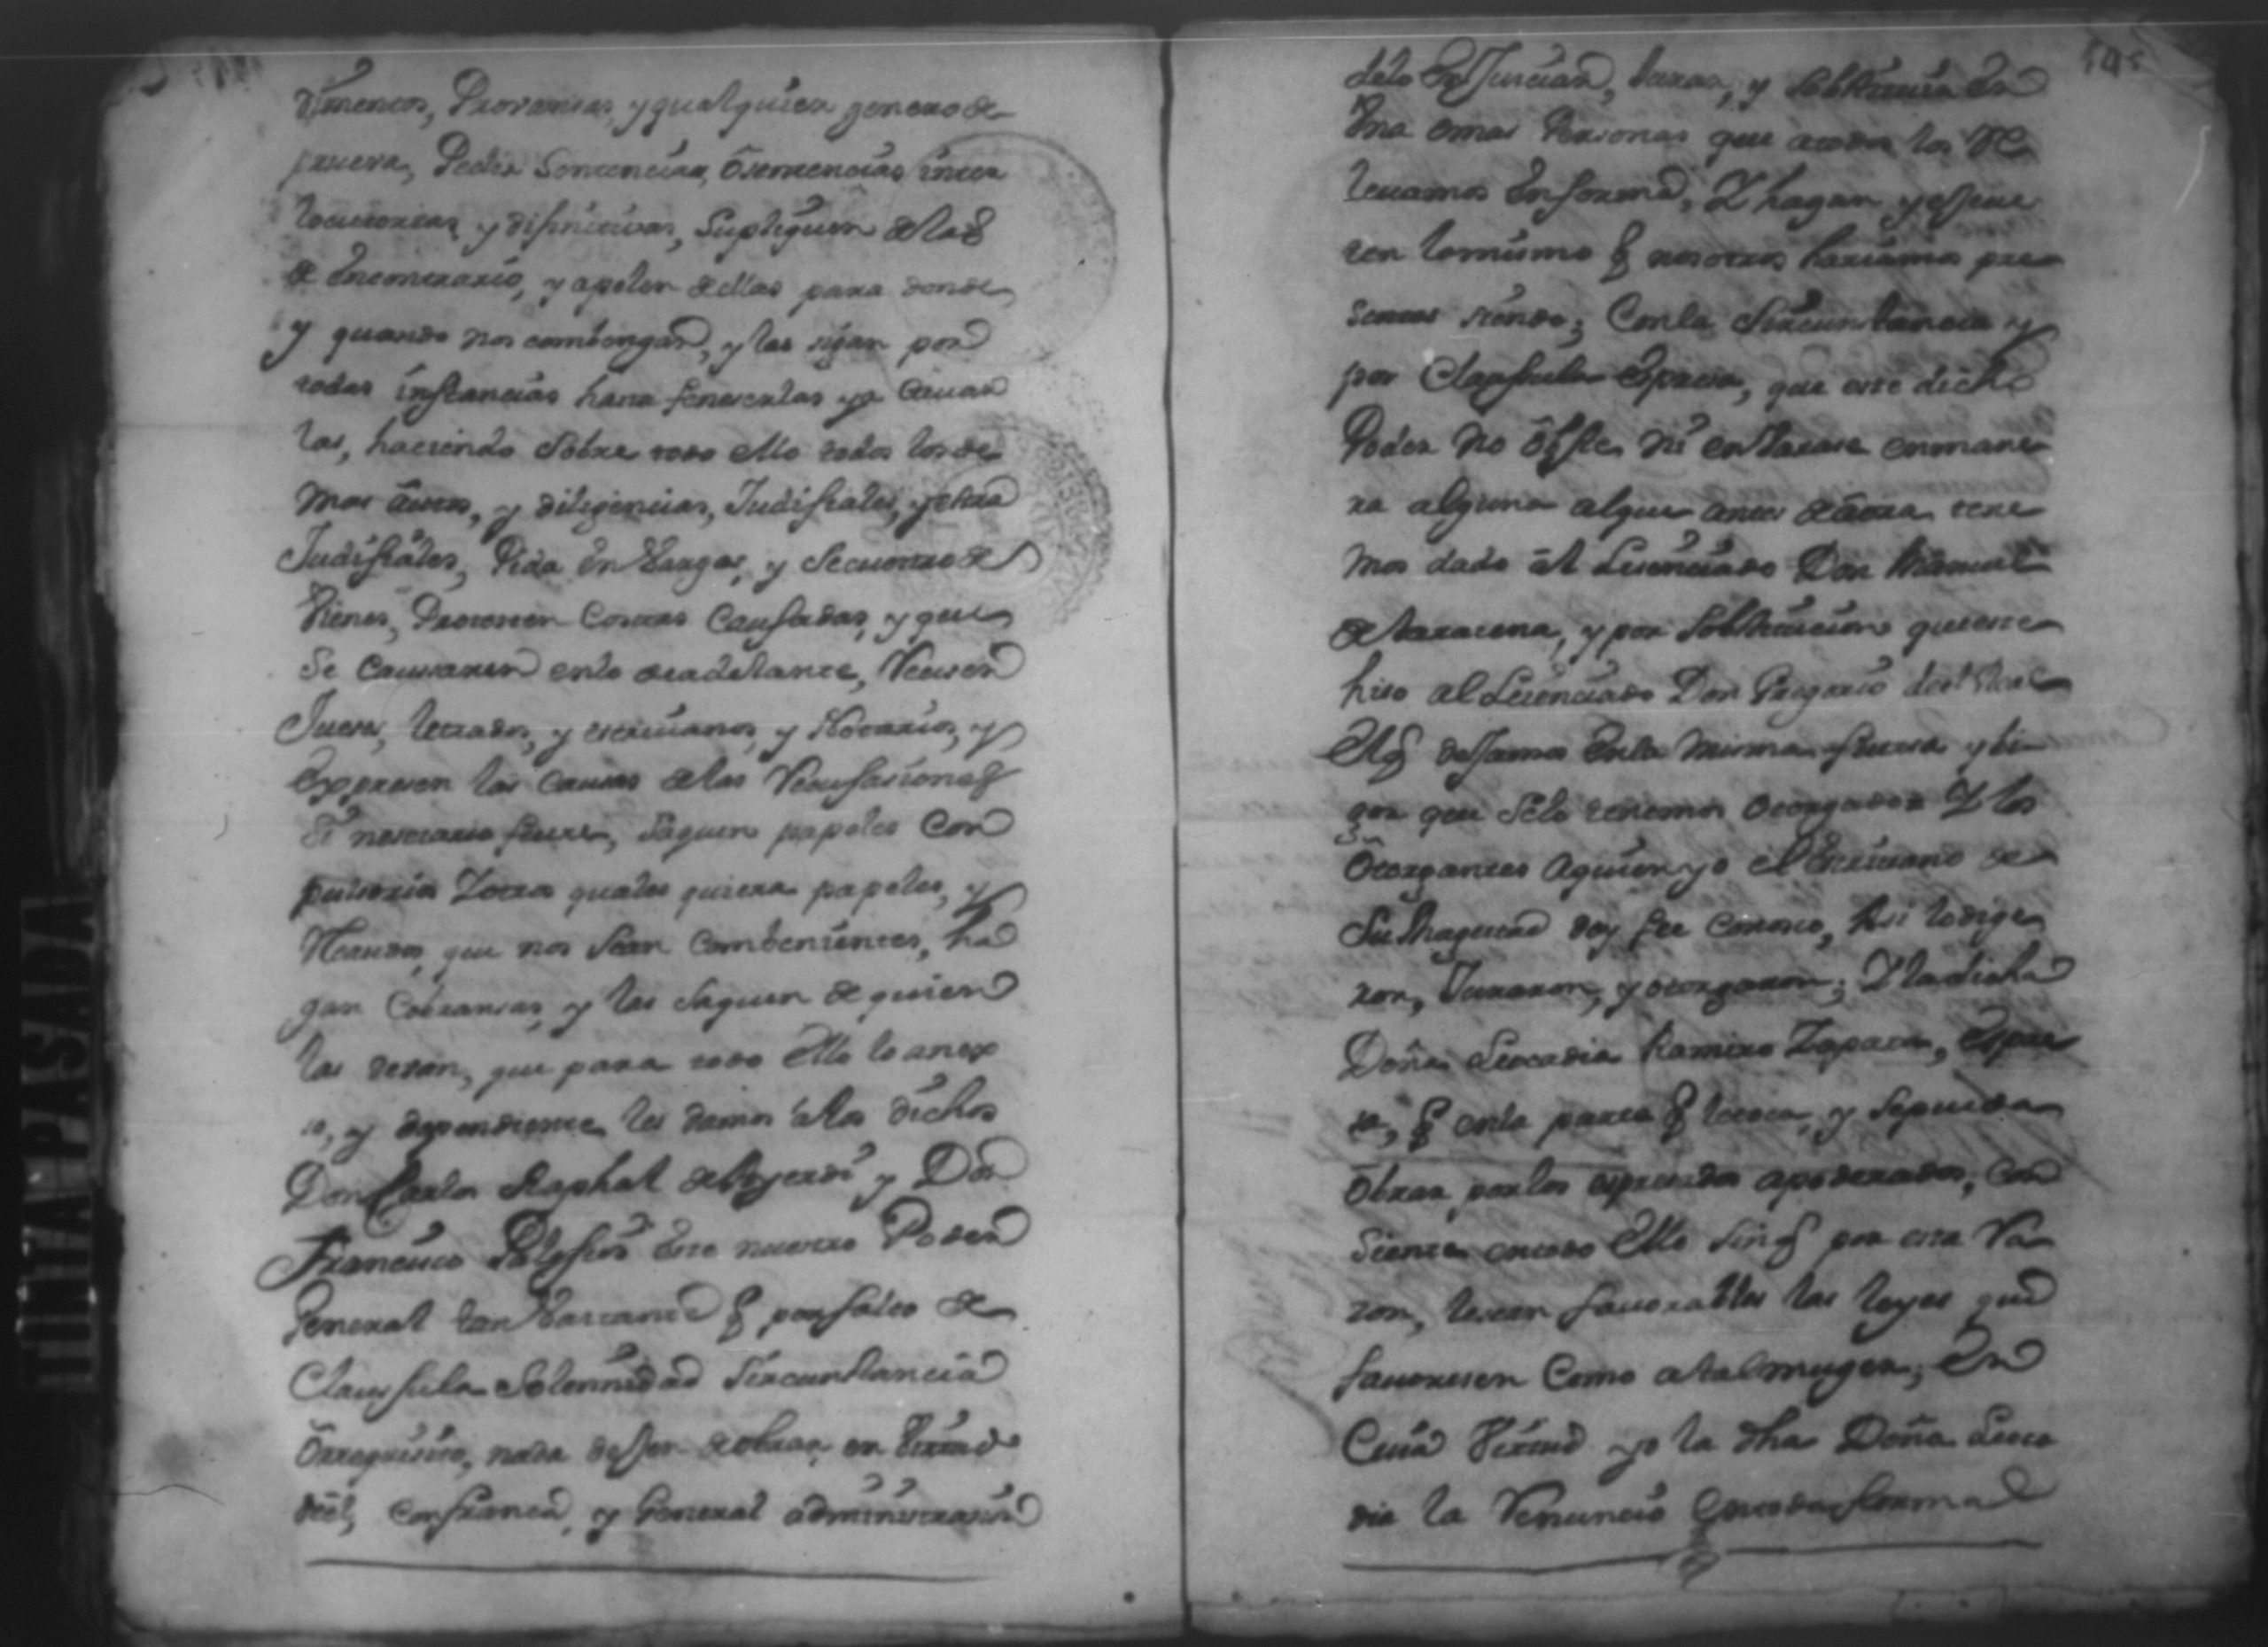 trimentos, Provansas, y qualquier genero de
prueva, Pedir Sentencias, ô sentencias inter
locutorias, y difinitivas, Supliquen de las
de Enconttrario, y apelen dellas para donde,
y quando nos combengan, y las sigan por
todas instancias hasta feneserlas y a Cavar
las, haciendo Sobre todo ello todos los de
mas autos, y diligencias, Judisiales, y extra
Judisiales, Pida Enbargos, y Secuestro de
Vienes, Protesten Costas Causadas, y que
Se Causaren enlo deadelante, Recusen
Jueses, letrados, y escrivanos, y Notarios, y
Expresen las Causas delas Recusasiones
Si nesesario fuere, Saquen papeles Con
pulsorias Y otros quales quiera papeles, y
Recaudos, que nos Sean Combenientes, ha
gan Cobransas, y las Saquen de quien
las tenan, que para todo Ello lo anexo
, y dependiente les damos alos dichos
Don Carlos Raphael y Don
Francisco Este nuestro Poder
General tan Bastante q por falta de
Clausula Solennidad Sircunstancia
Orrequisito, nada dejen de obrar, en Virtud
deel, Confranca, y General administrasion
delo EnJuician, Juran, y Sobstituian En
Una omas Personas que atodos los Re
levamos Enforma, Y hagan y esecu
ten lomismo q nosotros hariamos pre
sentes siendo; Conla Sircunstancia y
por Clausula Espresa, que este dicho
Poder no obste, ni enbarase enmane
ra alguna alque antes de aora tene
mos dado al Lisensiado Don Manuel
de taracena, y por Sobstitusion que este
hiso al Lisensiado Don Gregorio
El q dejamos Enla misma fuersa y bi
gor que Selo tenemos otorgado = Y los
Otorgantes aquien yo el Escrivano de
Su Magestad doy fee Conosco, Asi lo dige
ron, Juraron, y otorgaron; Y la dicha
Doña Leocadia Ramiro Zapata, Espre
sa, q enla parte q letoca, y Sepueda
Obrar por los espresados apoderados, Con
Siente entodo Ello Sin q por esta Ra
zon, le sean favorables las leyes que
favoresen Como atal muger, En
Cuia Virtud yo la dha Doña Leoca
dia la Renuncio Entoda forma